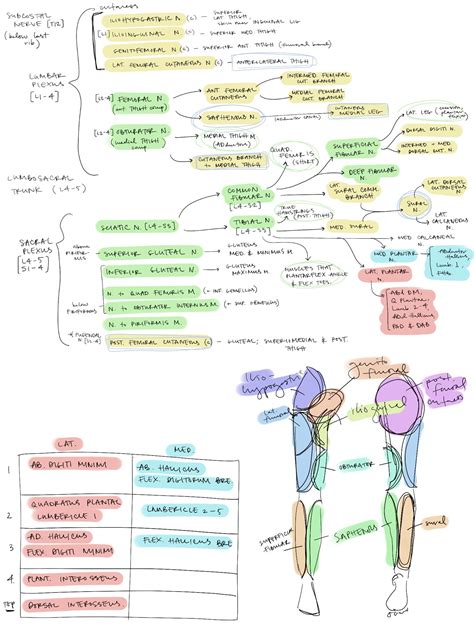 SUBCOSTAL
NERVE [T12]
(below last
rib)
cutaneous
ILIOHYPOGASTRIC N. (C) - SUPERIOR
LAT THIGH,
[L1] ILIOINGUINAL N. (C) - SUPERIOR MED THIGH
GENITOFEMORAL N (C) - SUPERIOR ANT THIGH
LAT. FEMORAL CUTANEOUS N (C) - ANTERIOLATERAL THIGH
LUMBAR
PLEXUS
[L1-4]
[L2-4] FEMORAL N
(ant thigh comp)
ANT FEMORAL
CUTANEOUS
INTERMED FEMORAL
CUT. BRANCH
MEDIAL FEMORAL
CUT BRANCH
SAPHENOUS N.
CUTANEOUS
MEDIAL LEG
[L2-4] OBTURATOR N.
(medial thigh
comp)
MEDIAL THIGH M.
(Adductors)
CUTANEOUS BRANCH
TO MEDIAL THIGH
QUAD.
FEMORIS
(SHORT)
SUPERFICIAL
FIBULAR N.
LAT. LEG
DORSAL DIGITI N.
INTERMED + MED
DORSAL CUT. N.
DEEP FIBULAR
N.
LUMBOSACRAL
TRUNK (L4-5)
COMMON
FIBULAR N.
[L4-S2]
LAT SURAL COMM.
BRANCH
LAT. DORSAL
CUTANEOUS
N.
SURAL
N.
LAT
CALCANEAL
N.
SACRAL
PLEXUS
L4-5
S1-4
SCIATIC N. [L4-S3]
TIBIAL N.
[L4-S3]
TRUE
HAMSTRINGS
(POST. THIGH)
MED. SURAL
MED CALCANEAL
N.
above
PIRIFORMIS
SUPERIOR GLUTEAL N.
GLUTEUS
MED & MINIMUS M.
INFERIOR GLUTEAL N.
GLUTEUS
MAXIMUS M.
MUSCLES THAT
PLANTARFLEX ANGLE
& FLEX TOES.
MED. PLANTAR
N.
LAT. PLANTAR
N.
below
Piriformis
N. TO QUAD FEMORIS M. (+ INF. GEMELLUS)
N. TO OBTURATOR INTERNUS M. (+ SUP. GEMELLUS)
N. TO PIRIFORMIS M.
* PUDENDAL
N. [S2-4]
POST. FEMORAL CUTANEOUS (C) - GLUTEAL, SUPERIOMEDIAL & POST.
THIGH
ABD DM,
Q Plantae
Lumb 2-4
Add Hallucis
PAD & DAB
LAT.
MED.
1
AB. DIGITI MINIMI
AB. HALLICUS
FLEX. DIGITORUM BRE
2
QUADRATUS PLANTAE
LUMBERICLE 1
LUMBERICLE 2-5
3
AD. HALLICUS
FLEX DIGITI MINIMI
FLEX. HALLICUS BRE
4
PLANT. INTEROSSEUS
TOP
DORSAL INTEROSSEUS
ilio-
hypogastric
genito
femoral
lat.
femoral
ilioinguinal
post.
femoral
cutaneous
OBTURATOR
SUPERFICIAL
FIBULAR
SAPHENOUS
sural